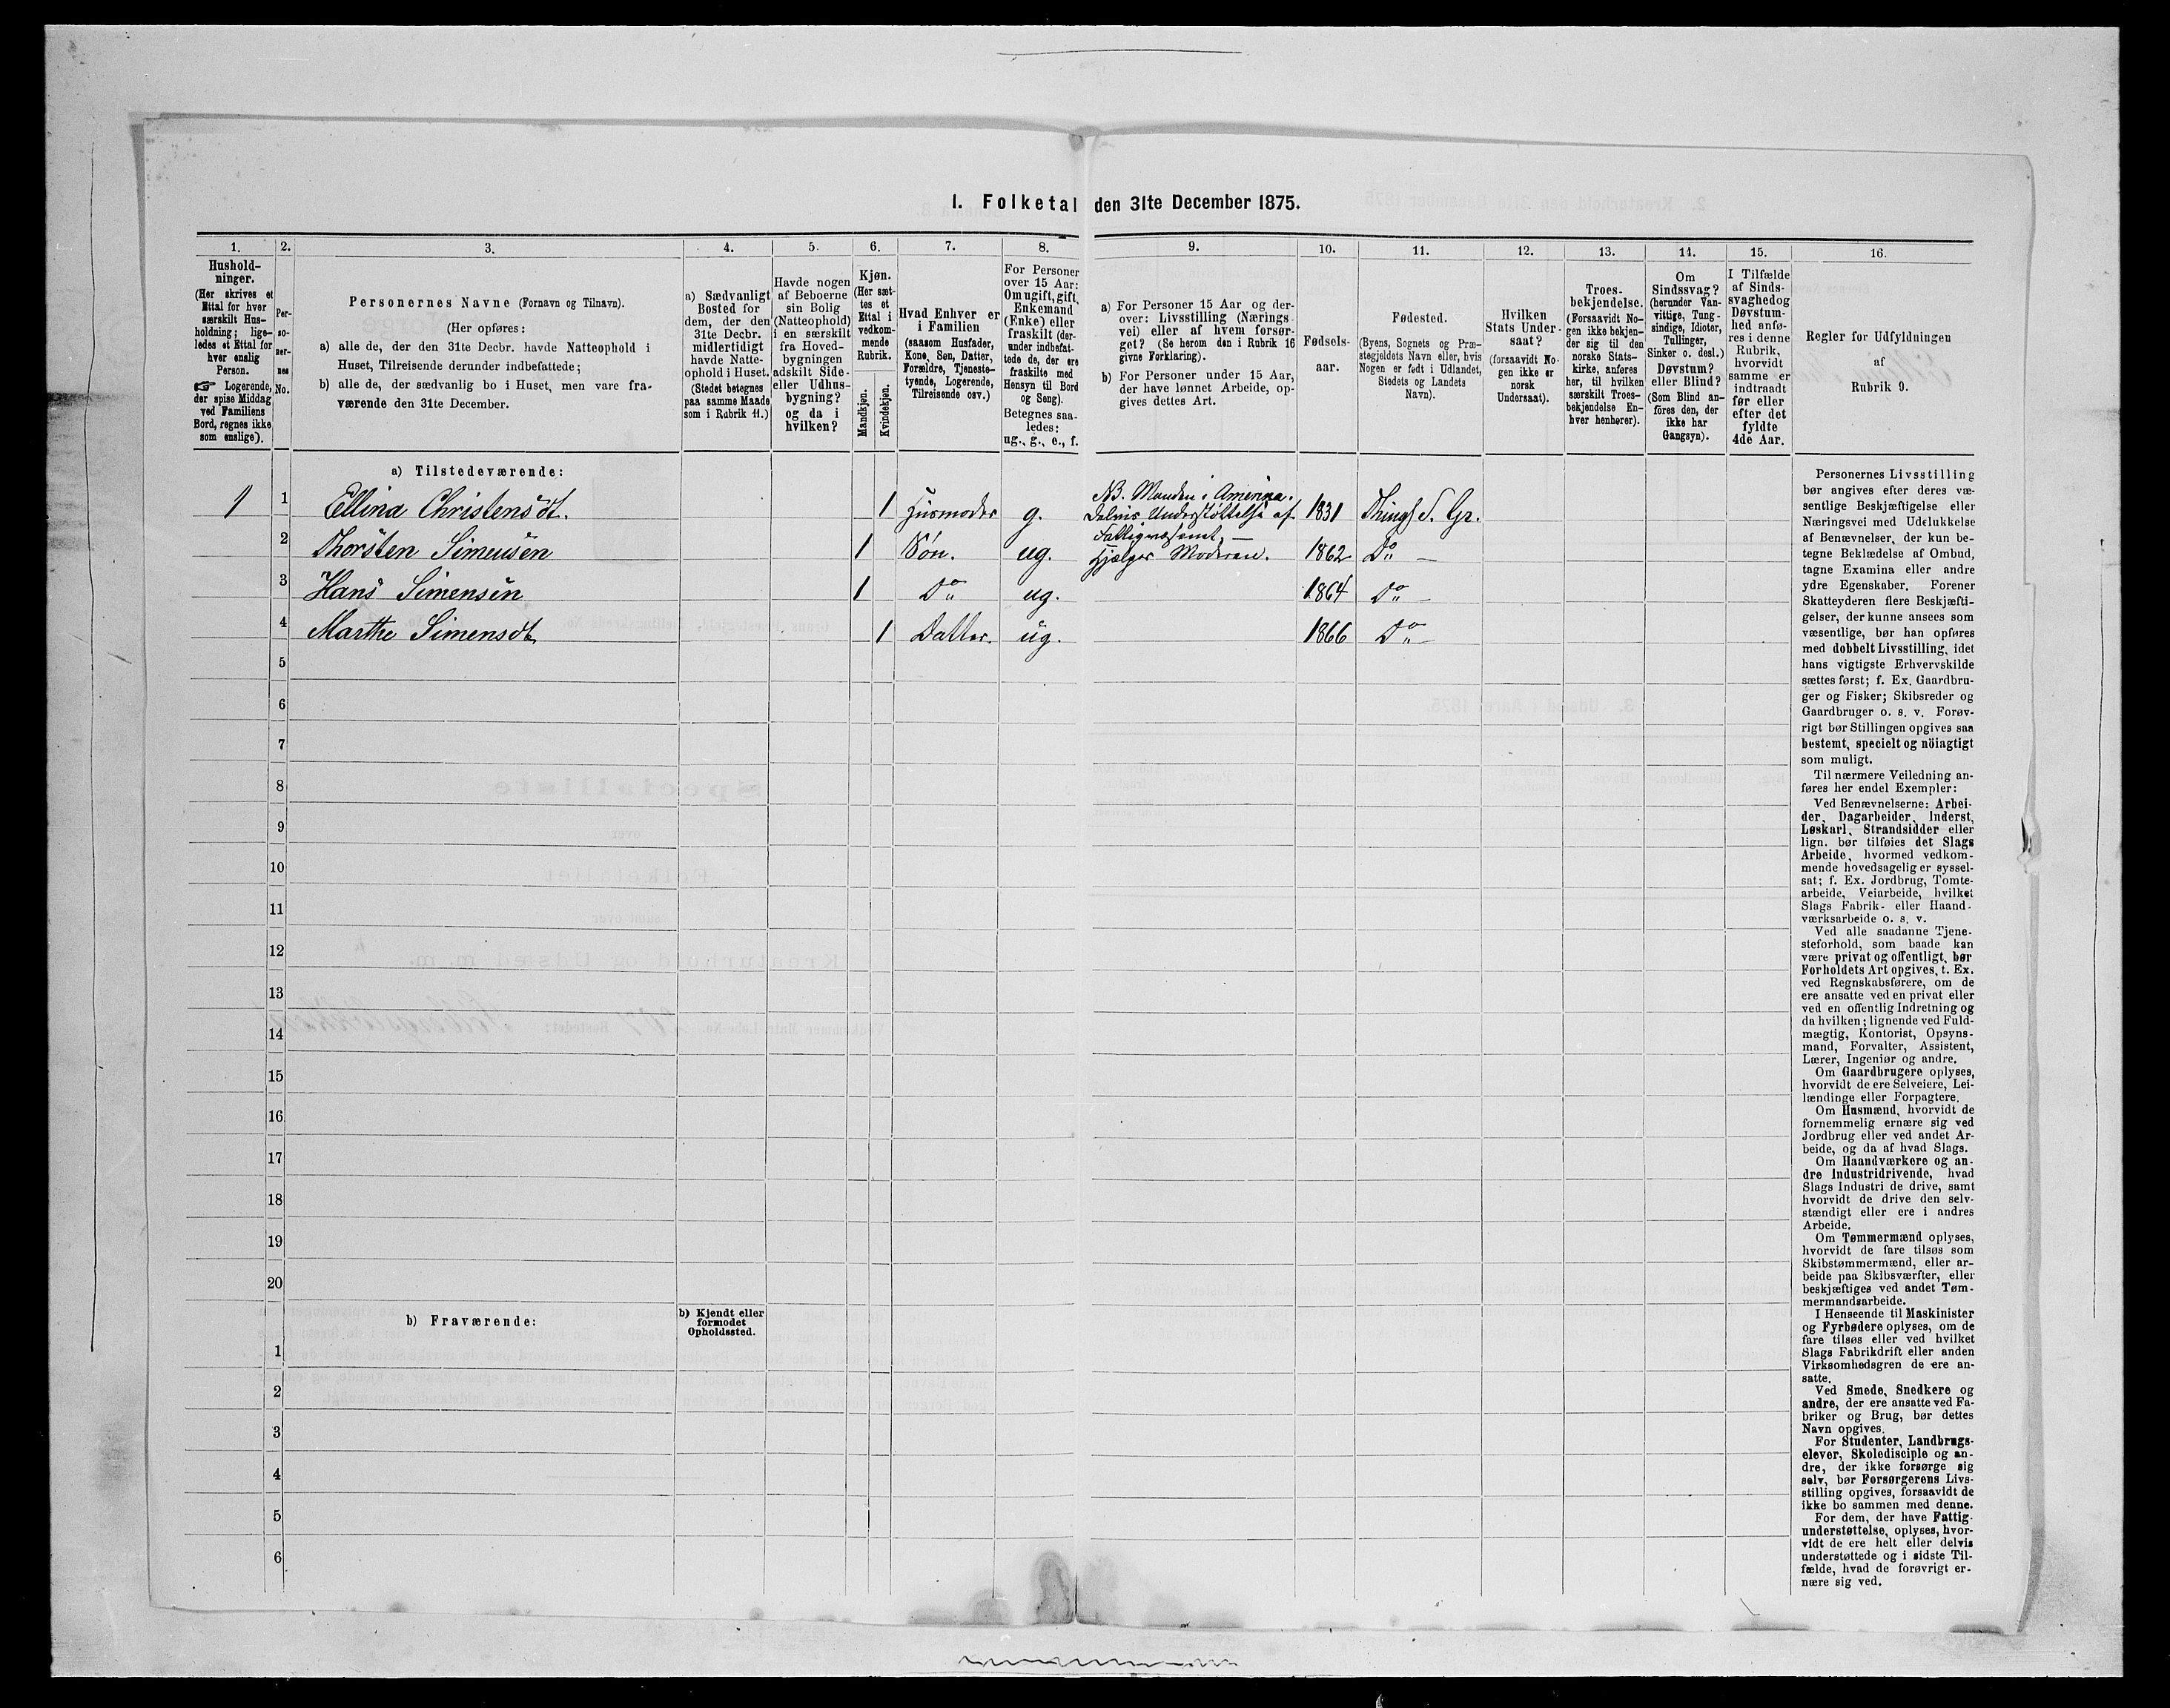 1. Folketal den 31te December 1875.
1.
2.
3.
4.
5.
6.
7.
8.
9.
10.
11.
12.
13.
14.
15.
16.
Hushold-
ninger.
(Her skrives et
Ettal for hver
særskilt Hus-
holdning; lige-
ledes et Ettal for
hver enslig
Person.
☞ Logerende,
der spise Middag
ved Familiens
Bord, regnes ikke
som enslige).
Per-
so-
ner-
nes
No.
Personernes Navne (Fornavn og Tilnavn).
(Her opføres:
a) alle de, der den 31te Decbr. havde Natteophold i
Huset, Tilreisende derunder indbefattede;
b) alle de, der sædvanlig bo i Huset, men vare fra-
værende den 31te December.
a) Sædvanligt
Bosted for
dem, der den
31te Decbr.
midlertidigt
havde Natte-
ophold i Huset.
(Stedet betegnes
paa samme Maade
som i Rubrik 11.)
Havde nogen
af Beboerne
sin Bolig
(Natteophold)
i en særskilt
fra Hoved-
bygningen
adskilt Side-
eller Udhus-
bygning?
og da i
hvilken?
Kjøn.
(Her sæt-
tes et
Ettal i
vedkom-
mende
Rubrik.
Mandkjøn.
Kvindekjøn.
Hvad Enhver er
i Familien
(saasom Husfader,
Kone, Søn, Datter,
Forældre, Tjeneste-
tyende, Logerende,
Tilreisende osv.)
For Personer
over 15 Aar:
Om ugift, gift,
Enkemand
(Enke) eller
fraskilt (der-
under indbefat-
tede de, der ere
fraskilte med
Hensyn til Bord
og Seng).
Betegnes saa-
ledes:
ug., g., e., f.
a) For Personer 15 Aar og der-
over: Livsstilling (Nærings-
vei) eller af hvem forsør-
get? (Se herom den i Rubrik 16
givne Forklaring).
b) For Personer under 15 Aar,
der have lønnet Arbeide, op-
gives dettes Art.
Fødsels-
aar.
Fødested.
(Byens, Sognets og Præ-
stegjeldets Navn eller, hvis
Nogen er født i Udlandet,
Stedets og Landets
Navn).
Hvilken
Stats Under-
saat?
(forsaavidt No-
gen ikke er
norsk
Undersaat).
Troes-
bekjendelse.
(Forsaavidt No-
gen ikke bekjen-
der sig til den
norske Stats-
kirke, anføres
her, til hvilken
særskilt Troes-
bekjendelse En-
hver henhører).
Om
Sindssvag?
(herunder Van-
vittige, Tung-
sindige, Idioter,
Tullinger,
Sinker o. desl.)
Døvstum?
eller Blind?
(Som Blind an-
føres den, der
ikke har
Gangsyn).
I Tilfælde
af Sinds-
svaghed og
Døvstum-
hed anfø-
res i denne
Rubrik,
hvorvidt
samme er
indtraadt
før eller
efter det
fyldte
4de Aar.
Regler for Udfyldningen
af
Rubrik 9.
a) Tilstedeværende:
1 1 Ellina Christensdt. 1 Husmoder g. NB. Manden i Amerika. Delvis Understöttelse af Fattigvæsenet, 1831 Thingl. S. Gr.
2 Thorsten Simensen 1 Sön. ug. Hjælper Moderen. 1862 Do
3 Hans Simensen 1 Do ug. 1864 Do
4 Marthe Simensdt 1 Datter. ug. 1866 Do
5
6
7
8
9
10
11
12
13
14
15
16
17
18
19
20
b) Fraværende:
b) Kjendt eller
formodet
Opholdssted.
1
2
3
4
5
6
Personernes Livsstilling
bør angives efter deres væ-
sentlige Beskjæftigelse eller
Næringsvei med Udelukkelse
af Benævnelser, der kun be-
tegne Beklædelse af Ombud,
tagne Examina eller andre
ydre Egenskaber. Forener
Skatteyderen flere Beskjæfti-
gelser, der kunne ansees som
væsentlige, bør han opføres
med dobbelt Livsstilling, idet
hans vigtigste Erhvervskilde
sættes først; f. Ex. Gaardbru-
ger og Fisker; Skibsreder og
Gaardbruger o. s. v. Forøv-
rigt bør Stillingen opgives saa
bestemt, specielt og nöiagtigt
som muligt.
Til nærmere Veiledning an-
føres her endel Exempler:
Ved Benævnelserne: Arbei-
der, Dagarbeider, Inderst,
Løskarl, Strandsidder eller
lign. bør tilføies det Slags
Arbeide, hvormed vedkom-
mende hovedsagelig er syssel-
sat; f. Ex. Jordbrug, Tomte-
arbeide, Veiarbeide, hvilket
Slags Fabrik- eller Haand-
værksarbeide o. s. v.
Ved alle saadanne Tjene-
steforhold, som baade kan
være privat og offentligt, bør
Forholdets Art opgives, t. Ex.
ved Regnskabsførere, om de
ere ansatte ved en privat eller
ved en offentlig Indretning og
da hvilken; lignende ved Fuld-
mægtig, Kontorist, Opsyns-
mand, Forvalter, Assistent,
Lærer, Ingeniør og andre.
Om Gaardbrugere oplyses,
hvorvidt de ere Selveiere, Lei-
lændinge eller Forpagtere.
Om Husmænd, hvorvidt de
fornemmelig ernære sig ved
Jordbrug eller ved andet Ar-
beide, og da af hvad Slags.
Om Haandværkere og an-
dre Industridrivende, hvad
Slags Industri de drive, samt
hvorvidt de drive den selv-
stændigt eller ere i andres
Arbeide.
Om Tømmermænd oplyses,
hvorvidt de fare tilsøs som
Skibstømmermænd, eller ar-
beide paa Skibsværfter, eller
beskjæftiges ved andet Tøm-
mermandsarbeide.
I Henseende til Maskinister
og Fyrbødere oplyses, om de
fare tilsøs eller ved hvilket
Slags Fabrikdrift eller anden
Virksomhedsgren de ere an-
satte.
Ved Smede, Snedkere og
andre, der ere ansatte ved Fa-
briker og Brug, bør dettes
Navn opgives.
For Studenter, Landbrugs-
elever, Skoledisciple og an-
dre, der ikke forsørge sig
selv, bør Forsørgerens Livs-
stilling opgives, forsaavidt de
ikke bo sammen med denne.
For dem, der have Fattig-
understøttelse, oplyses, hvor-
vidt de ere helt eller delvis
understøttede og i sidste Til-
fælde, hvad de forøvrigt er-
nære sig ved.